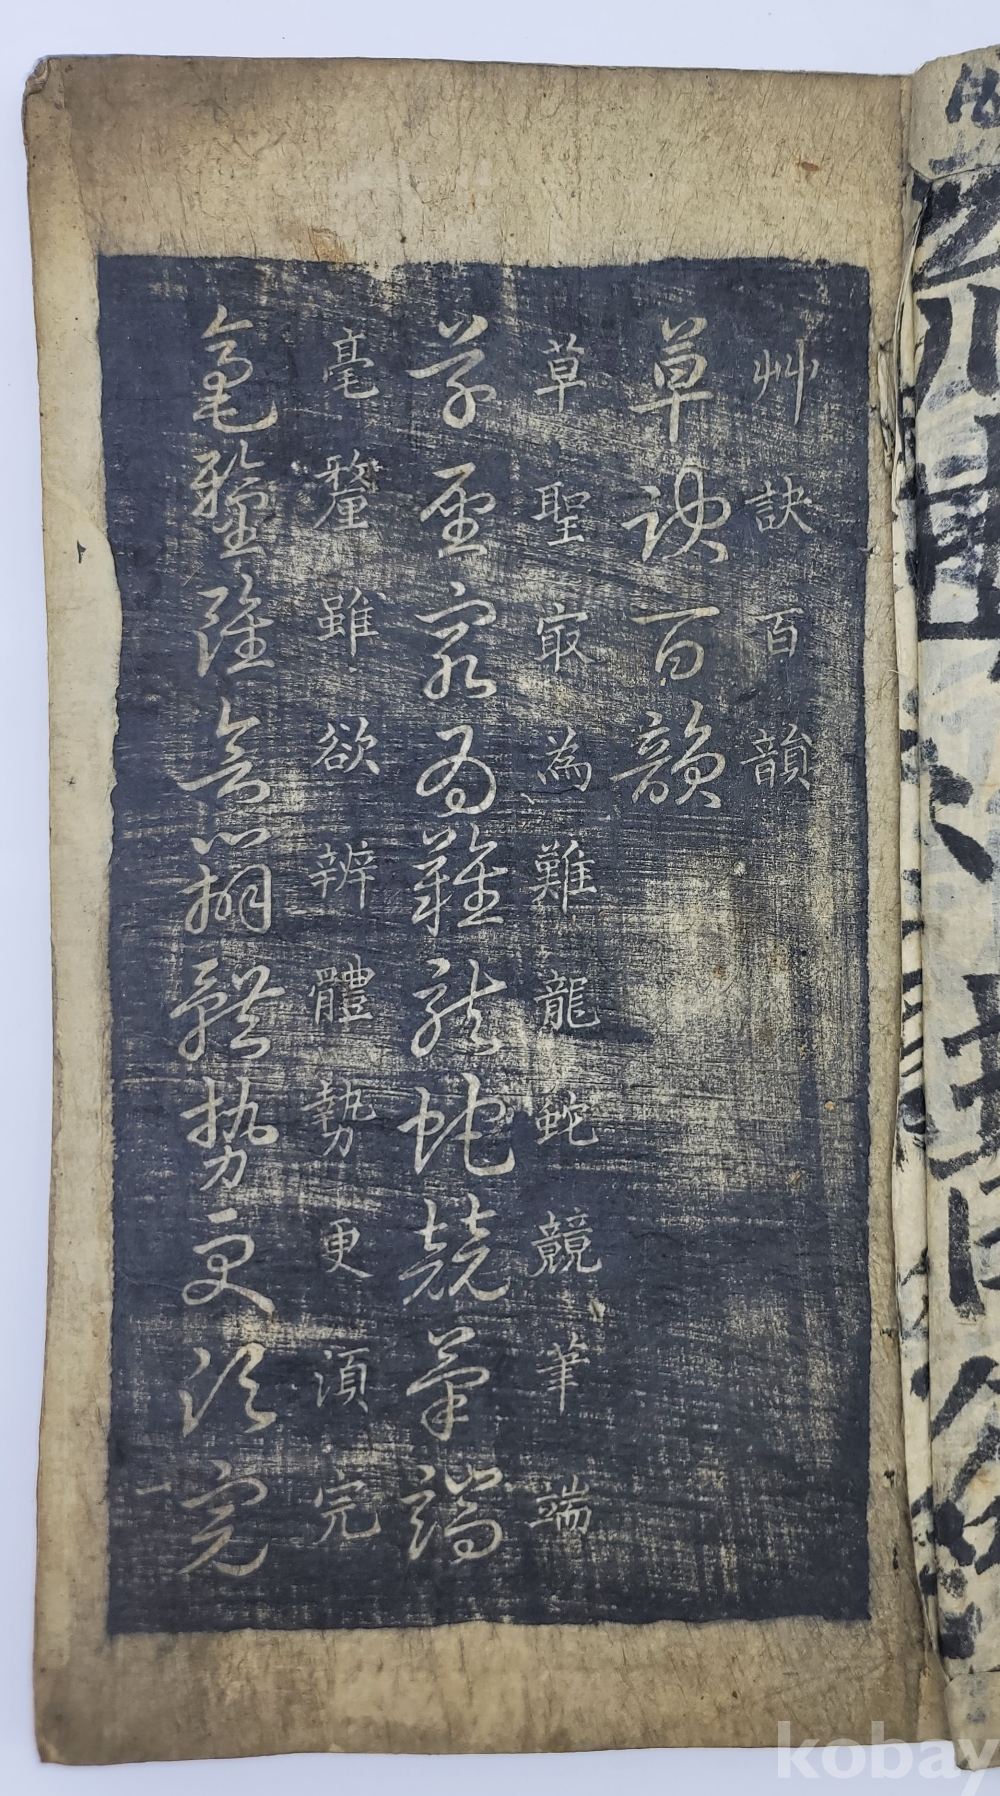 艸訣百韻
草訣百韻
草聖㝡為難龍蛇競筆端
草聖㝡為難龍蛇競筆端
毫釐雖欲辨體勢更湏完
毫釐雖欲辨體勢更須完
一
kobay